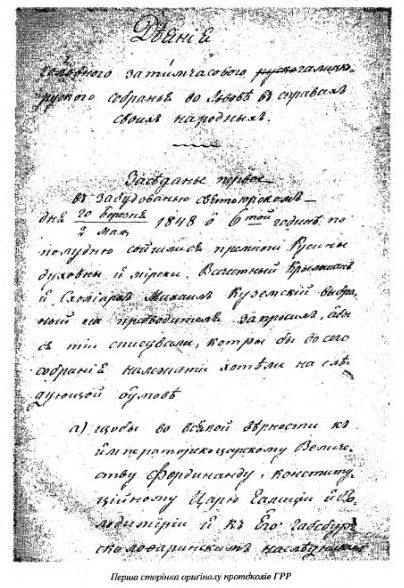 Дѣяніє
головного затимчасового рускогалицко-
руского собранья во Львовѣ в справахъ
своихъ народныхъ.
Засѣданьє первоє
въ забудованю святоюрскомъ
дня 20 Березня 1848 о 6той годинѣ по
2 Мая
полудню сойшлися премногі Русины
духовны и мірски. Всечтный Крылошанъ
и Схоліархъ Михаилъ Куземскій выбра-
ный на предводителя запросилъ, абы
ся тіи списували, котры бы до сего
собранія належати хотѣли на слѣ-
дующой умовѣ
а) щобы во всякой вѣрности къ
императорско царскому Величе-
ству Фердинанду, конститу-
ційному Царю Галиціи и Во-
лодимиріи и къ Єго габсбур-
ско лотаринскимъ наслѣдникамъ
Перша сторінка оригіналу протоколів ГРР